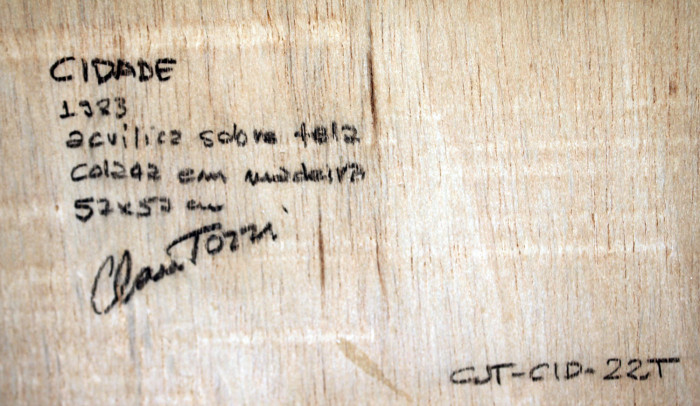 CIDADE
1983
acrilica sobre tela
colada em madeira
57x57 cm
Claudio Tozzi
CJT-CID-22T